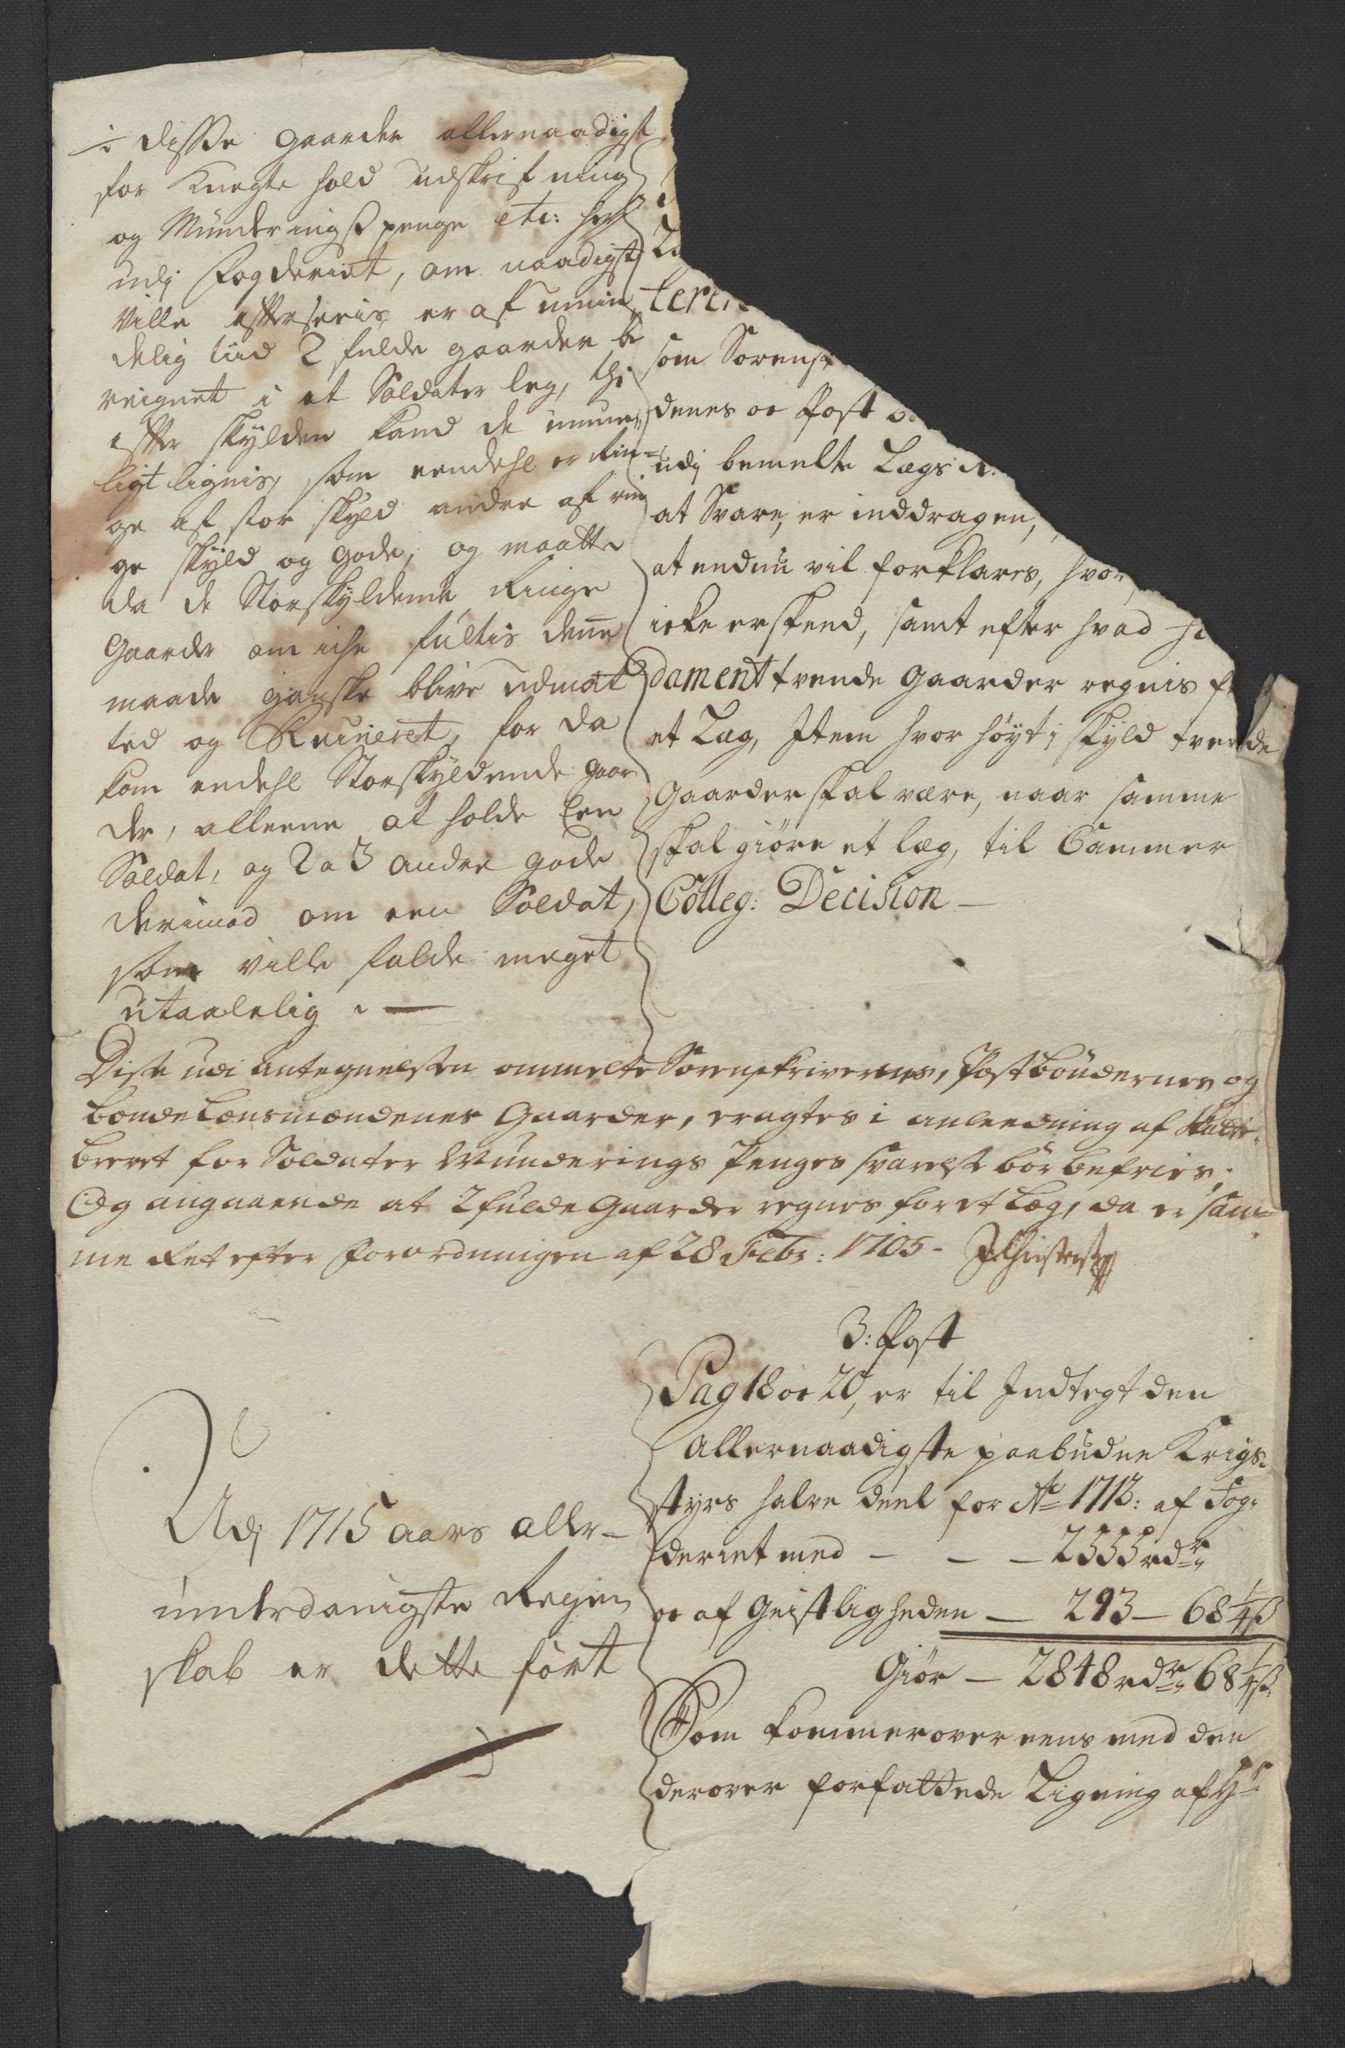 disse gaarder allernaadigst
for Knegte hold udskrifning
og Münderings penge etc:
udj Fogderiet, om naadigst
ville efterseeris er af umin
delig tiid 2 fulde gaarder be
reignet i et Soldater leg, thi
efter skylden kand de umue„
ligt lignis, som eendehl er Rin=
ge af stor skyld andre af rin
ge skyld og gode, og maatte
da de Storskyldende Ringe
Gaarder om iche fultis denne
maade ganske blive udmat
ted og Ruineret, for da
kom endehl Storskyldende gaar
der, alleene at holde Een
Soldat, og 2 a 3 andre gode
derimod om een Soldat,
som ville falde meget
utaalelig
som Sorensk
denes oc Post
udj bemelte Lægs
at Svare, er inddragen,
at endnu vil forklares, hvor
icke er skeed, samt efter hvad
dament tvende Gaarder regnis f
et Læg, Item hvor høyt i skyld tvende
Gaarder skal være, naar samme
skal giøre et læg, til Cammer
Colleg: Decision —
Disse udi Antegnelsen ommelte Sorenskrivernes, Postbøndernes og
bonde Lensmændenes Gaarder, eragtes i anleedning af
brevet for Soldater Munderings Penges svarelse bør befries;
Og angaaende at 2 fulde Gaarder regnes for et Læg, da er sam=
me Ret efter Forordningen af 28 Febr: 1705.
3: Post
Pag 18 oc 20, er til Indtegt den
Allernaadigste paabudne Krigs=
styrs halve deel for Ao 1713: af Fog=
deriet med — — — 2555 rdr
oc af Geistligheden — 293 — 68 1/4 ß
Giør — 2848 rdr 68 1/4 ß
Som kommer over eens med den
derover forfattede Ligning af Hr
Udj 1715 aars aller=
underdanigste Regen
skab er dette ført